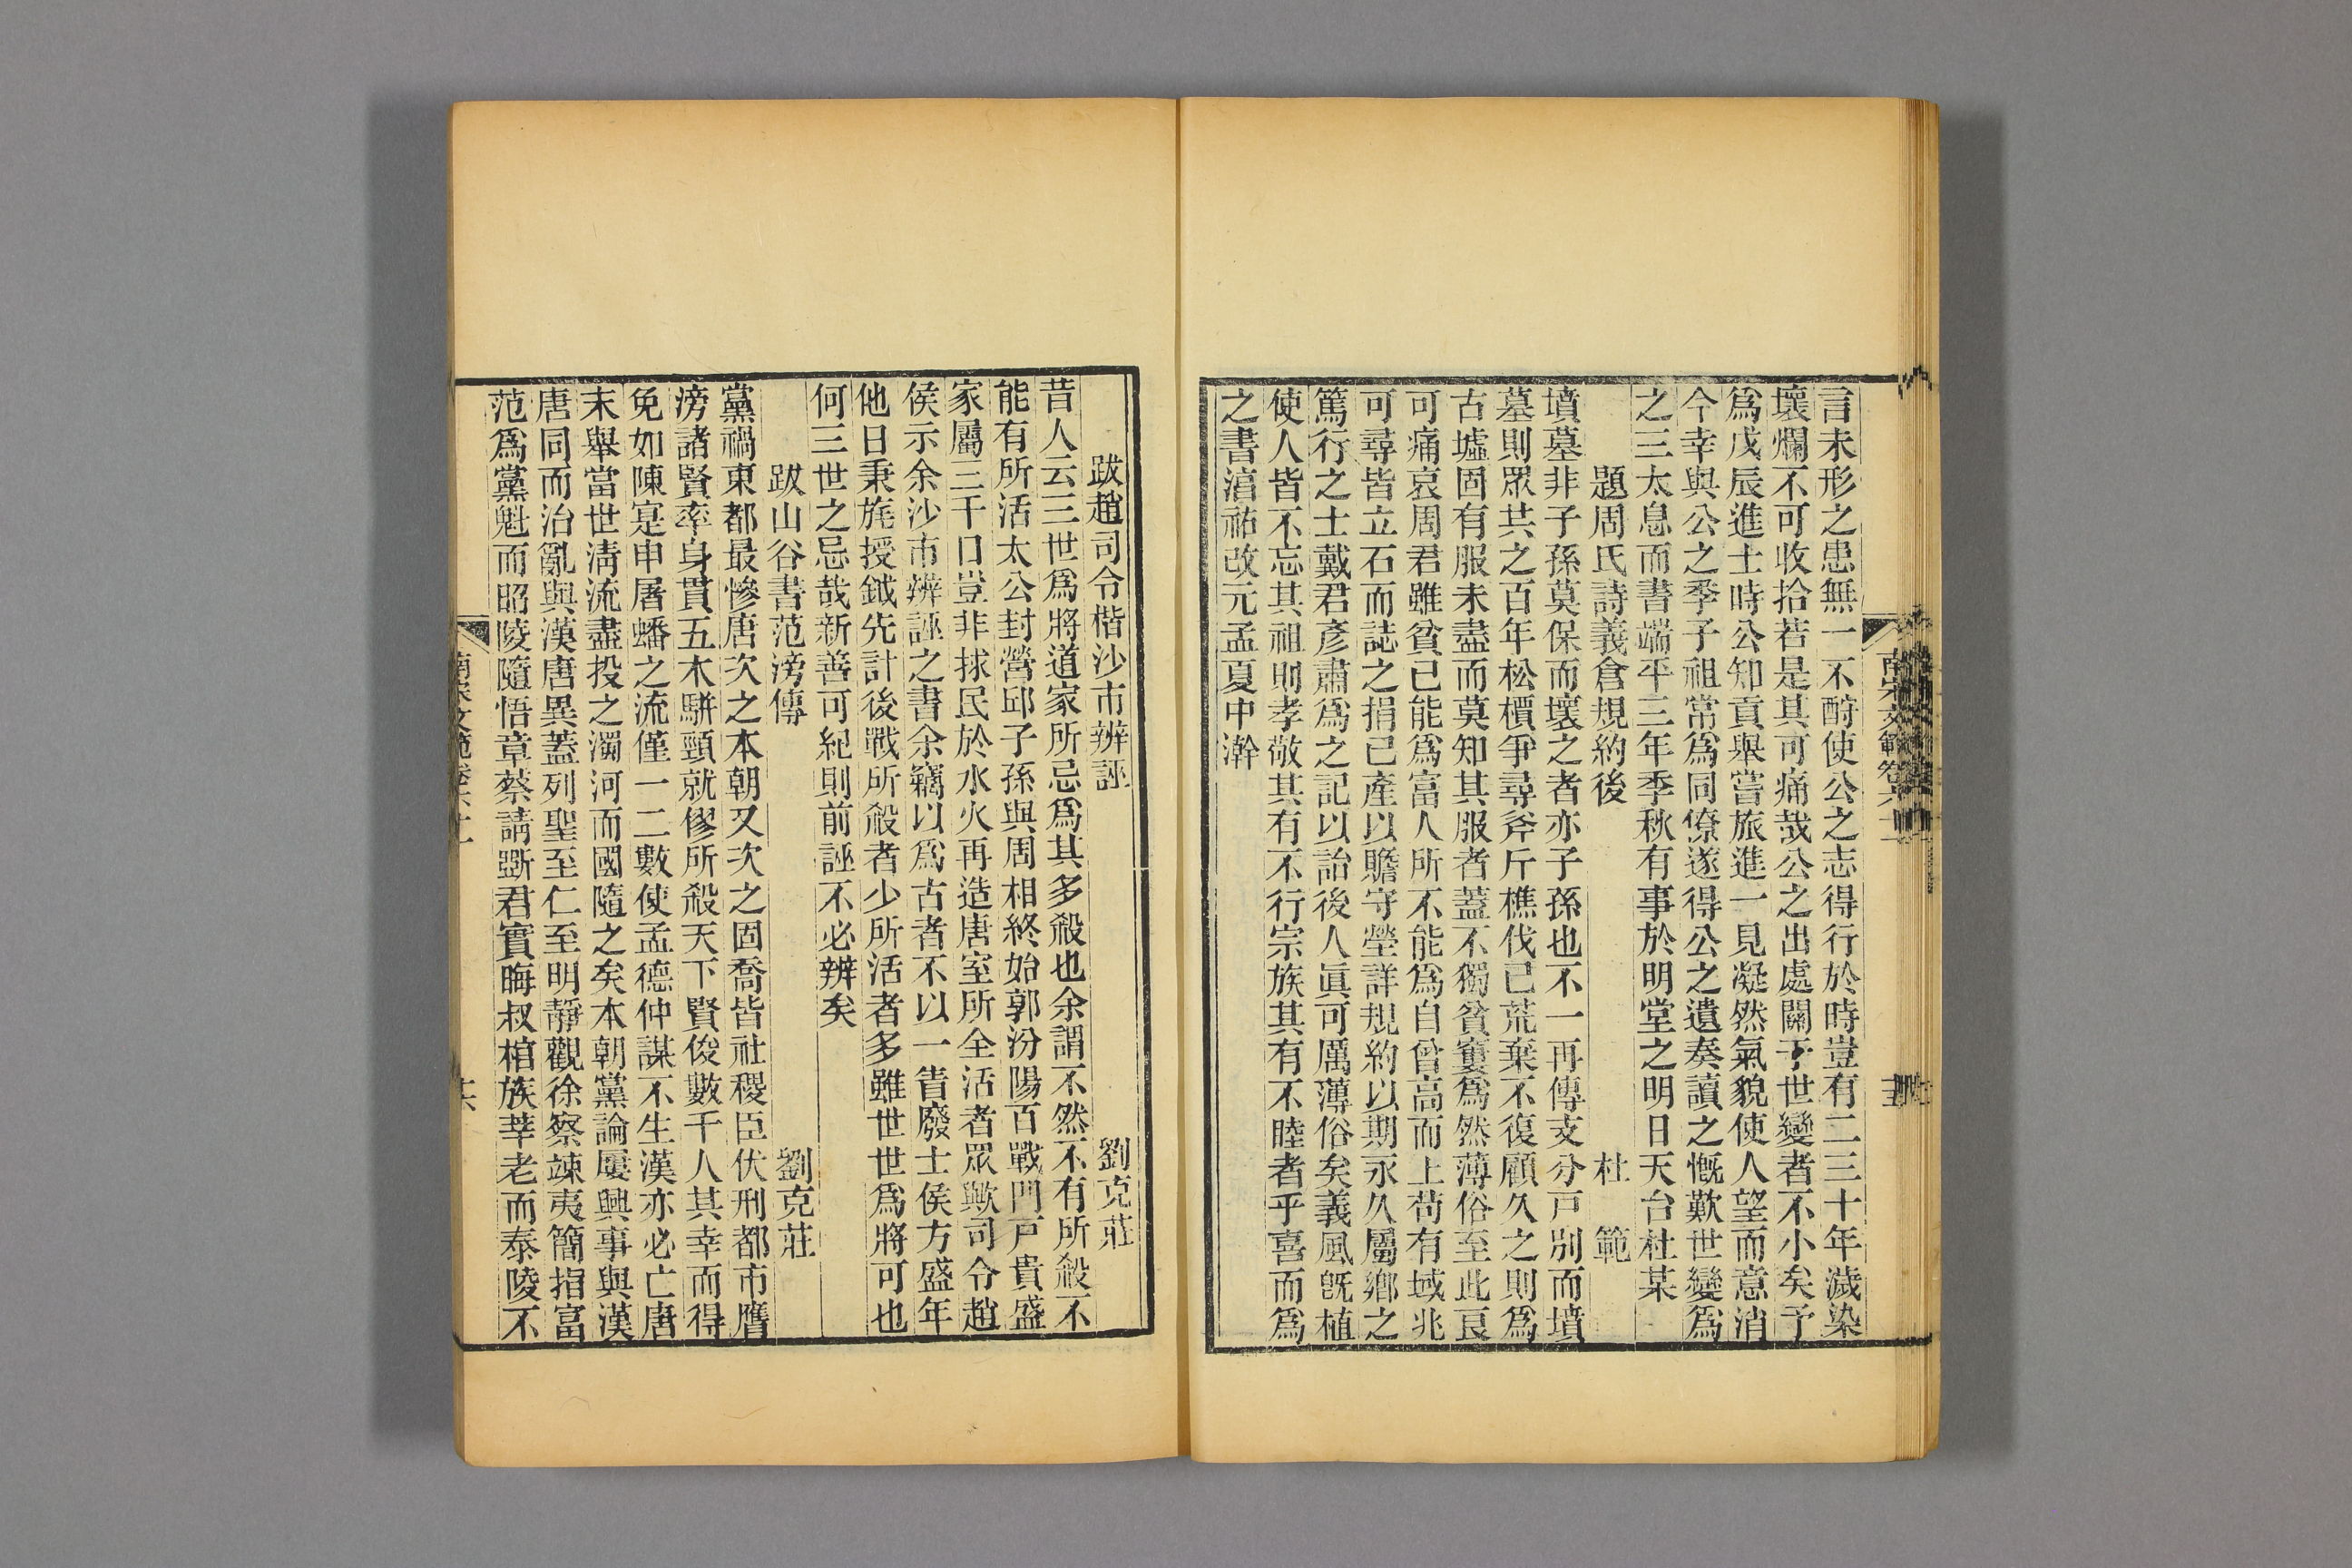 言未形之患無一不酧使公之志得行於時豈有二三十年濊染
壞爛不可收拾若是其可痛哉公之出處關乎世變者不小矣予
爲戊辰進士時公知貢舉嘗旅進一見凝然氣貌使人望而意消
今幸與公之季子祖常爲同僚遂得公之遺奏讀之慨歎世變爲
之三太息而書端平三年季秋有事於明堂之明日天台杜某
題周氏詩義倉規約後 杜範
墳墓非子孫莫保而壞之者亦子孫也不一再傳支分戸別而墳
墓則眾共之百年松檟爭尋斧斤樵伐已荒棄不復顧久之則爲
古墟固有服未盡而莫知其服者蓋不獨貧窶爲然薄俗至此良
可痛哀周君雖貧已能爲富人所不能爲自曾高而上苟有域兆
可尋皆立石而誌之捐己產以贍守塋詳規約以期永久屬鄉之
篤行之士戴君彥肅爲之記以詒後人眞可厲薄俗矣義風旣植
使人皆不忘其祖則孝敬其有不行宗族其有不睦者乎喜而爲
之書淳祐改元孟夏中澣
南宋文範卷六十一
十五
跋趙司令楷沙市辨誣 劉克莊
昔人云三世爲將道家所忌爲其多殺也余謂不然不有所殺不
能有所活太公封營邱子孫與周相終始郭汾陽百戰門戸貴盛
家屬三千口豈非拯民於水火再造唐室所全活者眾歟司令趙
侯示余沙市辨誣之書余竊以爲古者不以一眚廢士侯方盛年
他日秉旄授鉞先計後戰所殺者少所活者多雖世世爲將可也
何三世之忌哉新善可紀則前誣不必辨矣
跋山谷書范滂傳 劉克莊
黨禍東都最慘唐次之本朝又次之固喬皆社稷臣伏刑都市膺
滂諸賢率身貫五木駢頸就僇所殺天下賢俊數千人其幸而得
免如陳寔申屠蟠之流僅一二數使孟德仲謀不生漢亦必亡唐
末舉當世淸流盡投之濁河而國隨之矣本朝黨論屢興事與漢
唐同而治亂與漢唐異蓋列聖至仁至明靜觀徐察竦夷簡指富
范爲黨魁而昭陵隨悟章蔡請斲君實晦叔棺族莘老而泰陵不
南宋文範卷六十一
十六